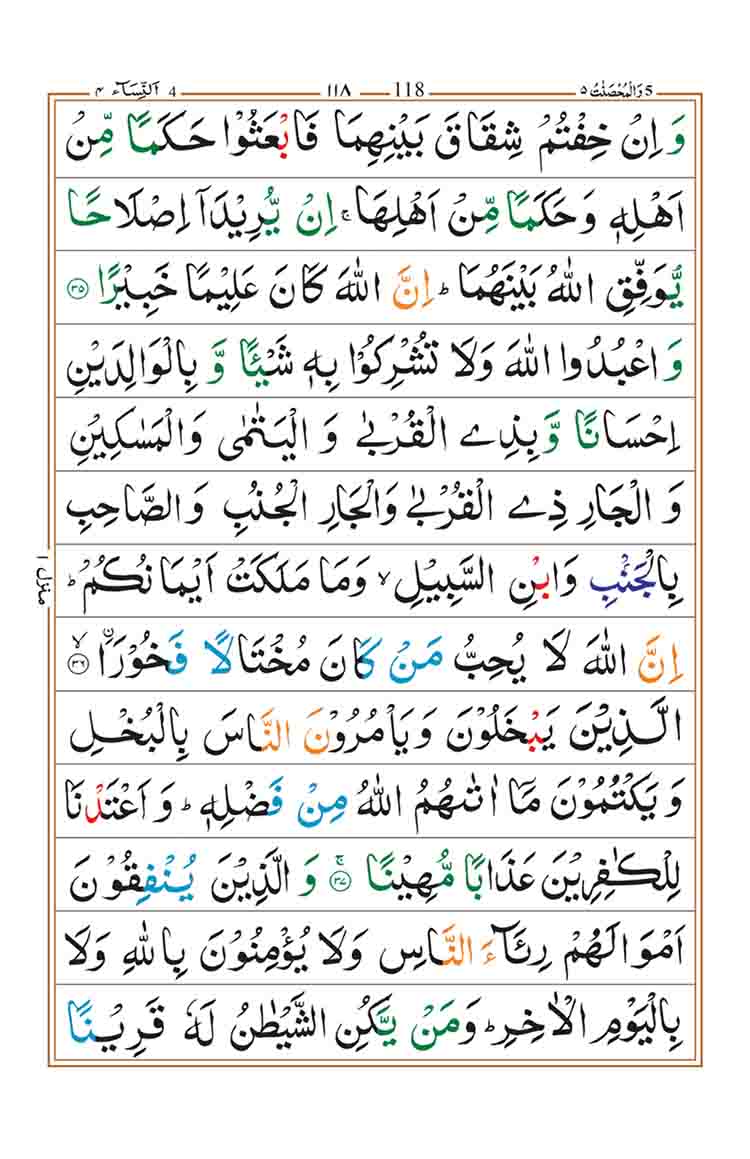 5 وَالْمُحْصَنٰتُ ٥ 118 ١١٨ 4 اَلنِّسَآء ٤
وَ اِنْ خِفْتُمْ شِقَاقَ بَيْنِهِمَا فَابْعَثُوْا حَكَمًا مِّنْ
اَهْلِهٖ وَحَكَمًا مِّنْ اَهْلِهَا ۚ اِنْ يُّرِيْدَاۤ اِصْلَاحًا
يُّوَفِّقِ اللّٰهُ بَيْنَهُمَا ؕ اِنَّ اللّٰهَ كَانَ عَلِيْمًا خَبِيْرًا ﴿٣٥﴾
وَ اعْبُدُوا اللّٰهَ وَلَا تُشْرِكُوْا بِهٖ شَيْئًا وَّ بِالْوَالِدَيْنِ
اِحْسَانًا وَّبِذِى الْقُرْبٰى وَ الْيَتٰمٰى وَالْمَسٰكِيْنِ
وَ الْجَارِ ذِى الْقُرْبٰى وَالْجَارِ الْجُنُبِ وَالصَّاحِبِ
بِالْجَنْۢبِ وَابْنِ السَّبِيْلِ ۙ وَمَا مَلَكَتْ اَيْمَانُكُمْ ؕ
اِنَّ اللّٰهَ لَا يُحِبُّ مَنْ كَانَ مُخْتَالًا فَخُوْرَا ۟ۙ ﴿٣٦﴾
الَّذِيْنَ يَبْخَلُوْنَ وَيَاْمُرُوْنَ النَّاسَ بِالْبُخْلِ
وَيَكْتُمُوْنَ مَاۤ اٰتٰٮهُمُ اللّٰهُ مِنْ فَضْلِهٖ ؕ وَ اَعْتَدْنَا
لِلْكٰفِرِيْنَ عَذَابًا مُّهِيْنًا ۚ ﴿٣٧﴾ وَ الَّذِيْنَ يُنْفِقُوْنَ
اَمْوَالَهُمْ رِئَآءَ النَّاسِ وَلَا يُؤْمِنُوْنَ بِاللّٰهِ وَلَا
بِالْيَوْمِ الْاٰخِرِ ؕ وَمَنْ يَّكُنِ الشَّيْطٰنُ لَهٗ قَرِيْنًا
منزل ١